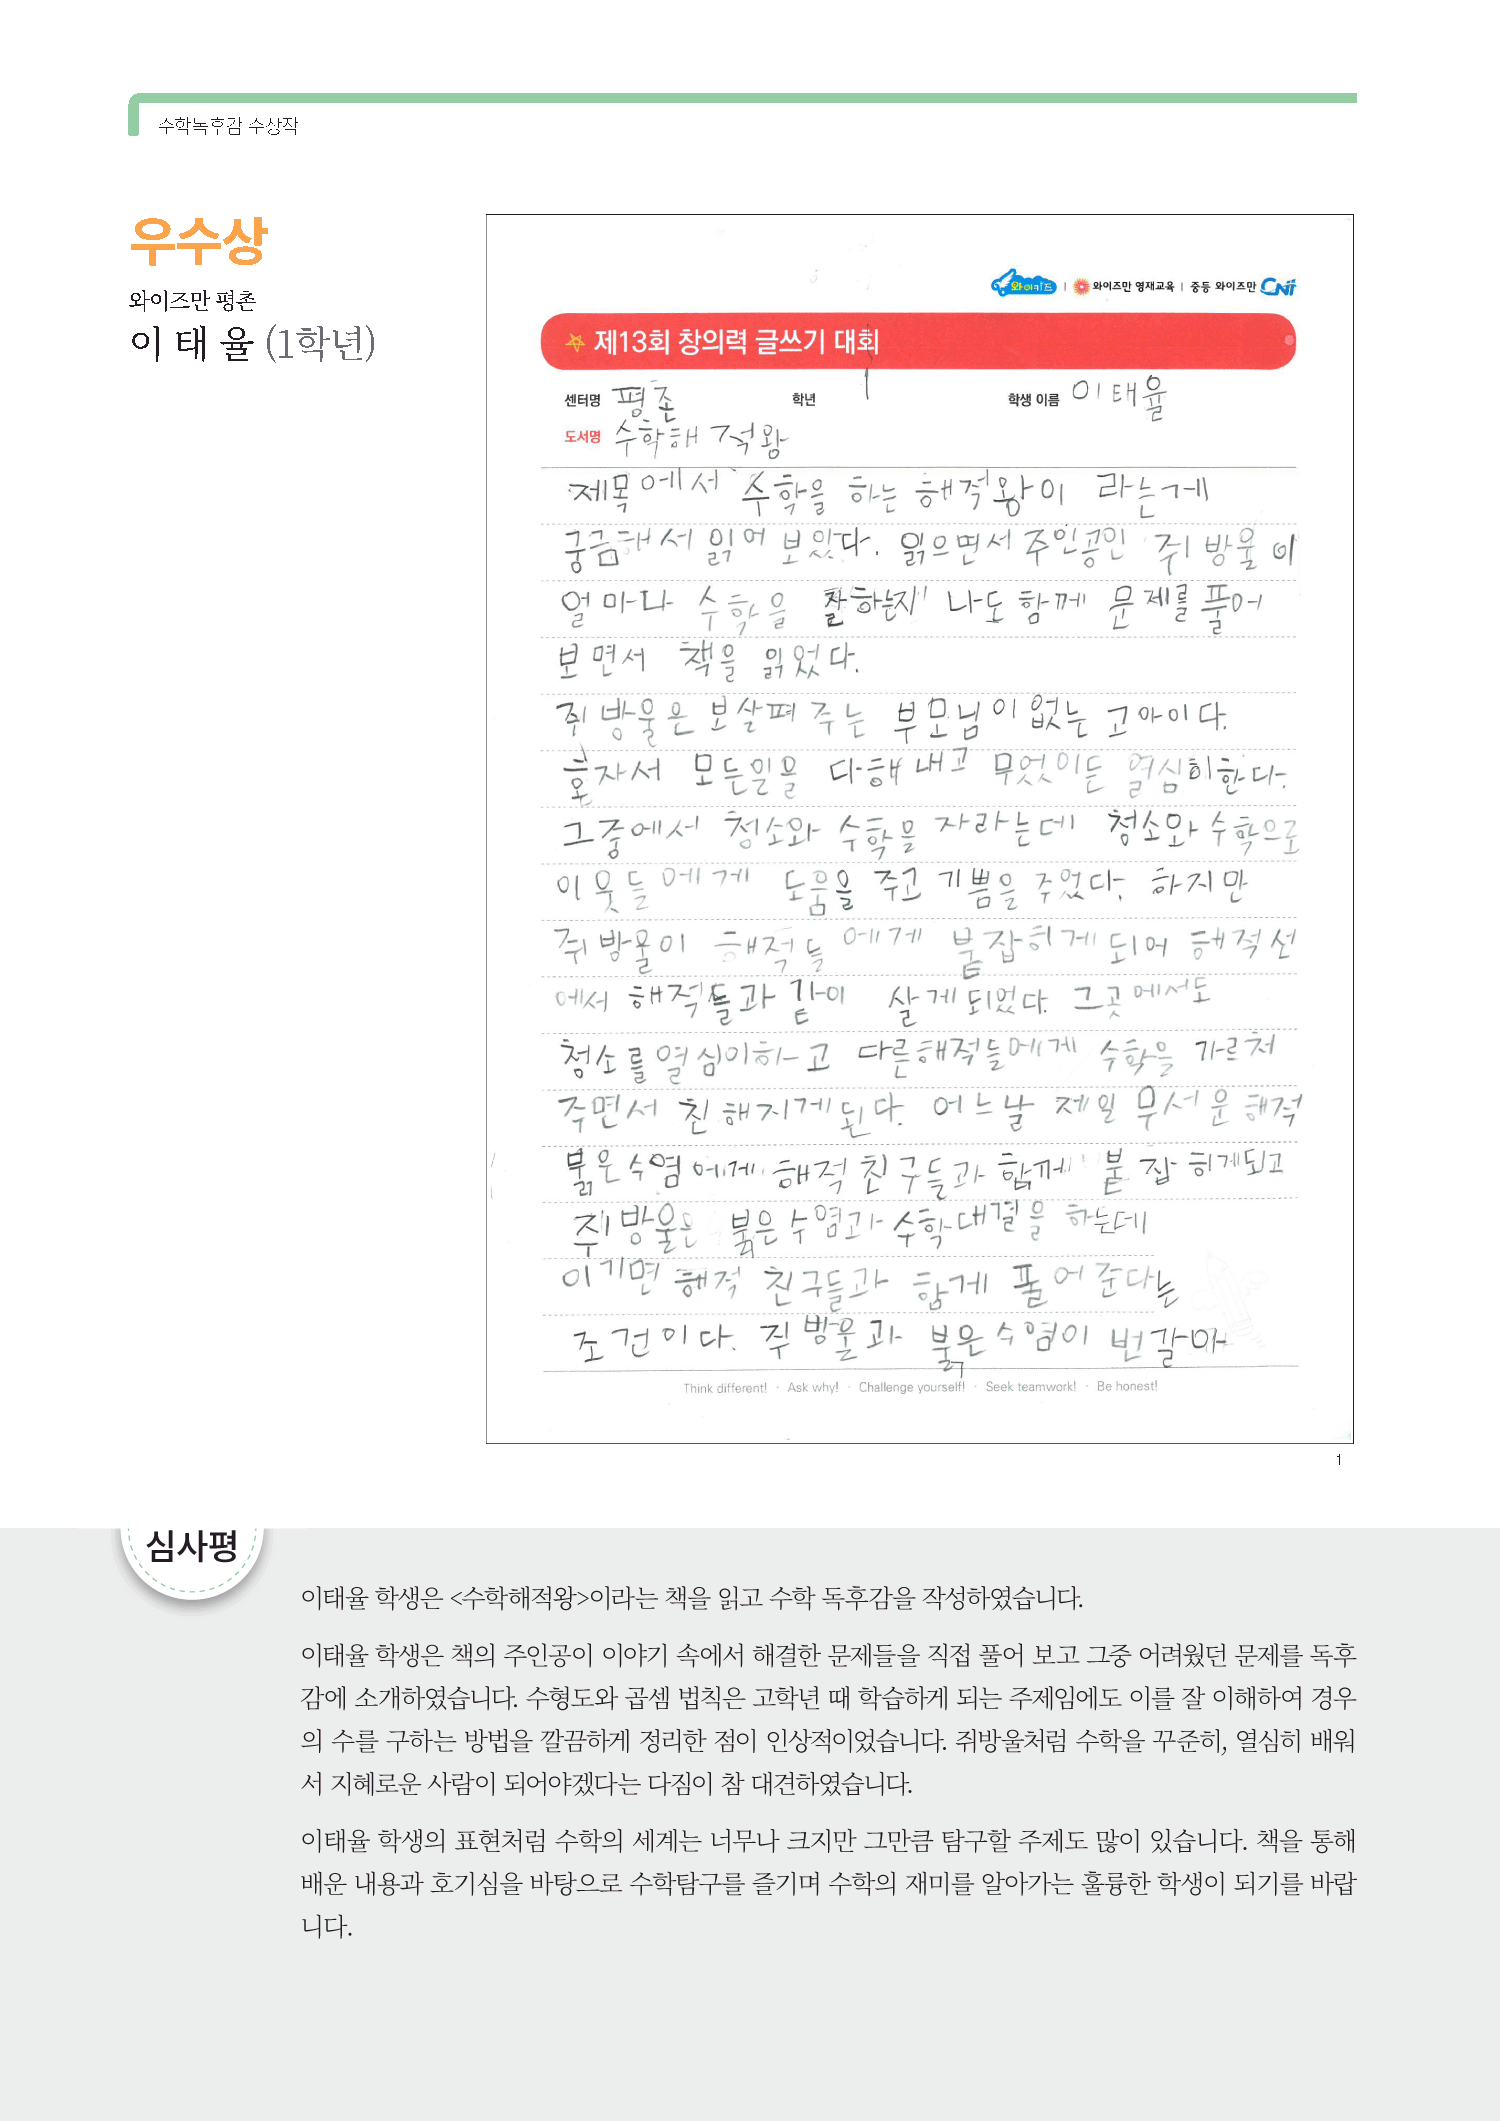 수학독후감 수상작
우수상
와이즈만 평촌
이 태 율 (1학년)
와이키즈 | 와이즈만 영재교육 | 중등 와이즈만 CNI
제13회 창의력 글쓰기 대회
센터명 평촌 학년 1 학생 이름 이태율
도서명 수학해적왕
제목에서 수학을 하는 해적왕이 라는게
궁금해서 읽어 보았다. 읽으면서 주인공인 쥐방울이
얼마나 수학을 잘하는지 나도 함께 문제를 풀어
보면서 책을 읽었다.
쥐방울은 보살펴 주는 부모님이 없는 고아이다.
혼자서 모든일을 다해 내고 무엇이든 열심히한다.
그중에서 청소와 수학을 자라는데 청소와 수학으로
이웃들에게 도움을 주고 기쁨을 주었다. 하지만
쥐방울이 해적들에게 붙잡히게 되어 해적선
에서 해적들과 같이 살게 되었다. 그곳에서도
청소를 열심이하고 다른해적들에게 수학을 가르쳐
주면서 친해지게된다. 어느날 제일 무서운 해적
붉은수염에게 해적친구들과 함께 붙잡히게되고
쥐방울은 붉은수염과 수학대결을 하는데
이기면 해적 친구들과 함게 풀어준다는
조건이다. 쥐방울과 붉은수염이 번갈아
Think different! · Ask why! · Challenge yourself! · Seek teamwork! · Be honest!
1
심사평
이태율 학생은 <수학해적왕>이라는 책을 읽고 수학 독후감을 작성하였습니다.
이태율 학생은 책의 주인공이 이야기 속에서 해결한 문제들을 직접 풀어 보고 그중 어려웠던 문제를 독후
감에 소개하였습니다. 수형도와 곱셈 법칙은 고학년 때 학습하게 되는 주제임에도 이를 잘 이해하여 경우
의 수를 구하는 방법을 깔끔하게 정리한 점이 인상적이었습니다. 쥐방울처럼 수학을 꾸준히, 열심히 배워
서 지혜로운 사람이 되어야겠다는 다짐이 참 대견하였습니다.
이태율 학생의 표현처럼 수학의 세계는 너무나 크지만 그만큼 탐구할 주제도 많이 있습니다. 책을 통해
배운 내용과 호기심을 바탕으로 수학탐구를 즐기며 수학의 재미를 알아가는 훌륭한 학생이 되기를 바랍
니다.